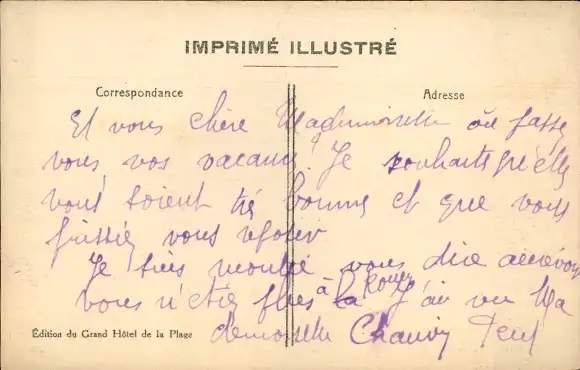 IMPRIMÉ ILLUSTRÉ
Correspondance
Adresse
Et vous chère Mademoiselle où passez
vous vos vacances? Je souhaite qu'elles
vous soient très bonnes et que vous
puissiez vous reposer
Je suis vous dire
vous n'étiez plus à la Rouen J'ai vu Ma
demoiselle Chauvin
Édition du Grand Hôtel de la Plage